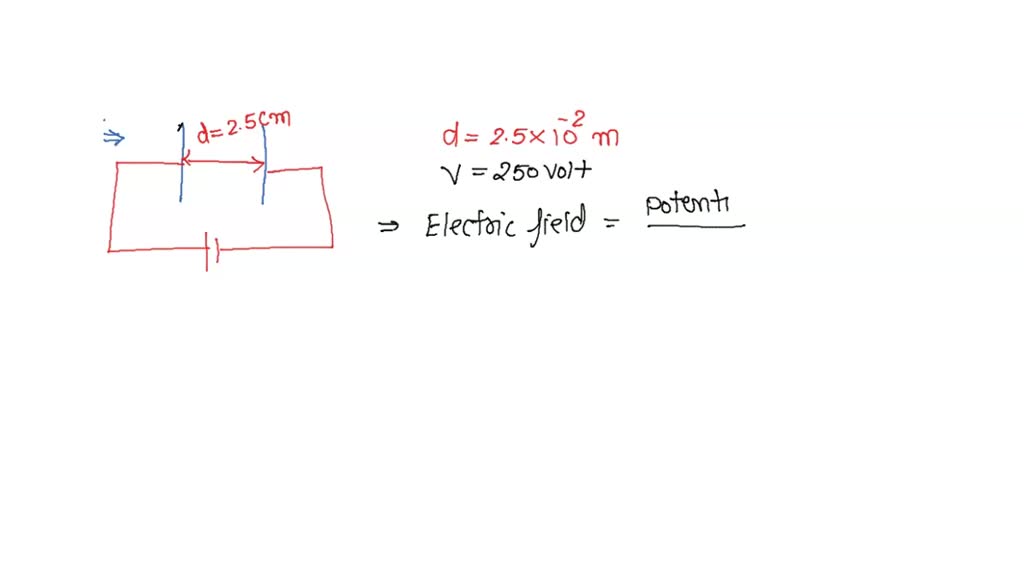 ⇒ d=2.5cm
d= 2.5×10⁻² m
V = 250 volt
⇒ Electric field = potenti